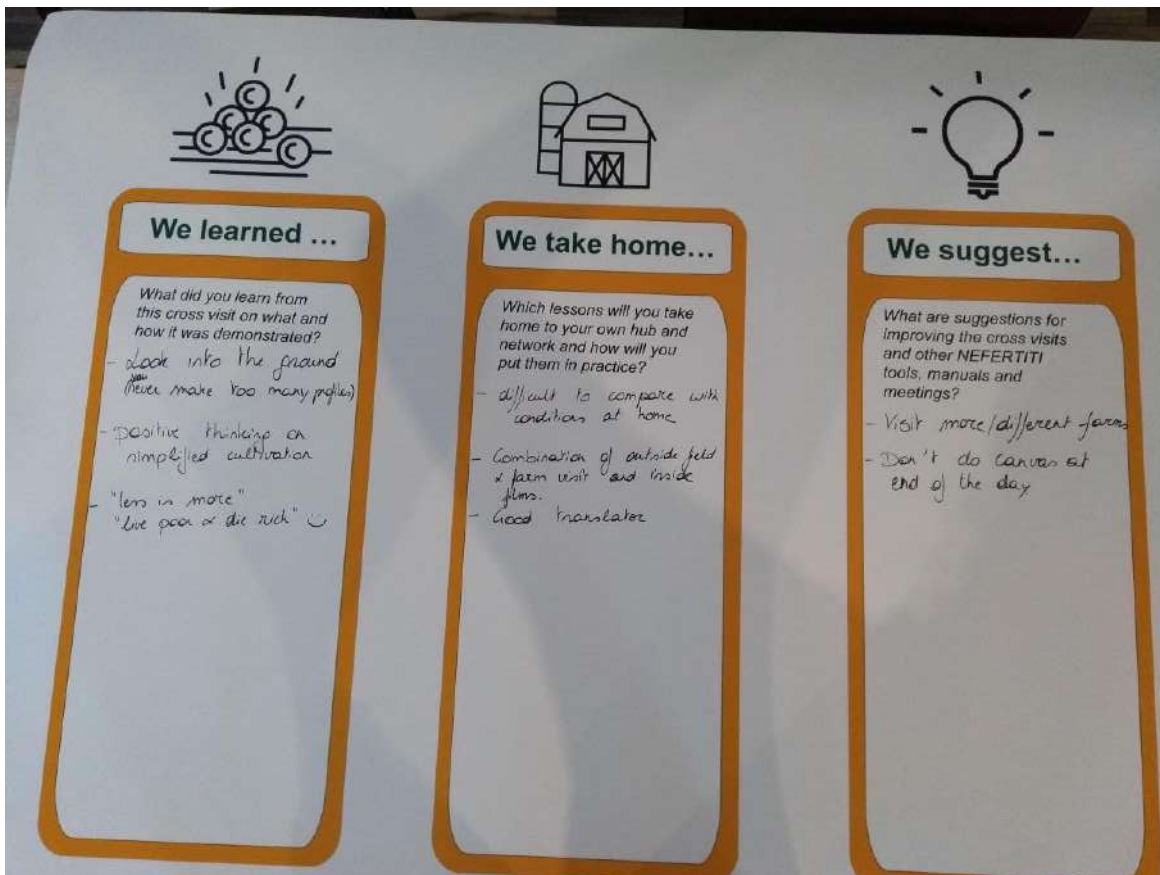 We learned ...
What did you learn from
this cross visit on what and
how it was demonstrated?
- Look into the ground
you
(never make too many profiles)
- Positive thinking on
simplified cultivation
- "less is more"
"live poor & die rich"
We take home...
Which lessons will you take
home to your own hub and
network and how will you
put them in practice?
- difficult to compare with
conditions at home
- Combination of outside field
& farm visit and inside
films.
- Good translator
We suggest...
What are suggestions for
improving the cross visits
and other NEFERTITI
tools, manuals and
meetings?
- Visit more/different farms
- Don't do canvas at
end of the day